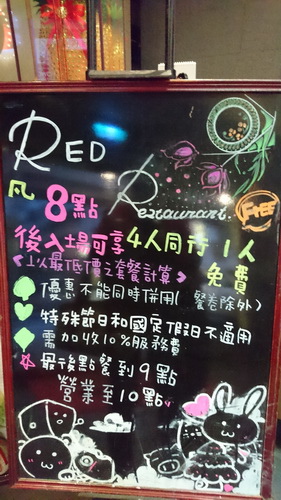 RED
Restaurant.
FREE
凡 8點
後入場可享4人同行1人
<以最低價之套餐計算> 免費
優惠不能同時併用(餐卷除外)
特殊節日和國定假日不適用
需加收10%服務費
最後點餐到9點
營業至10點